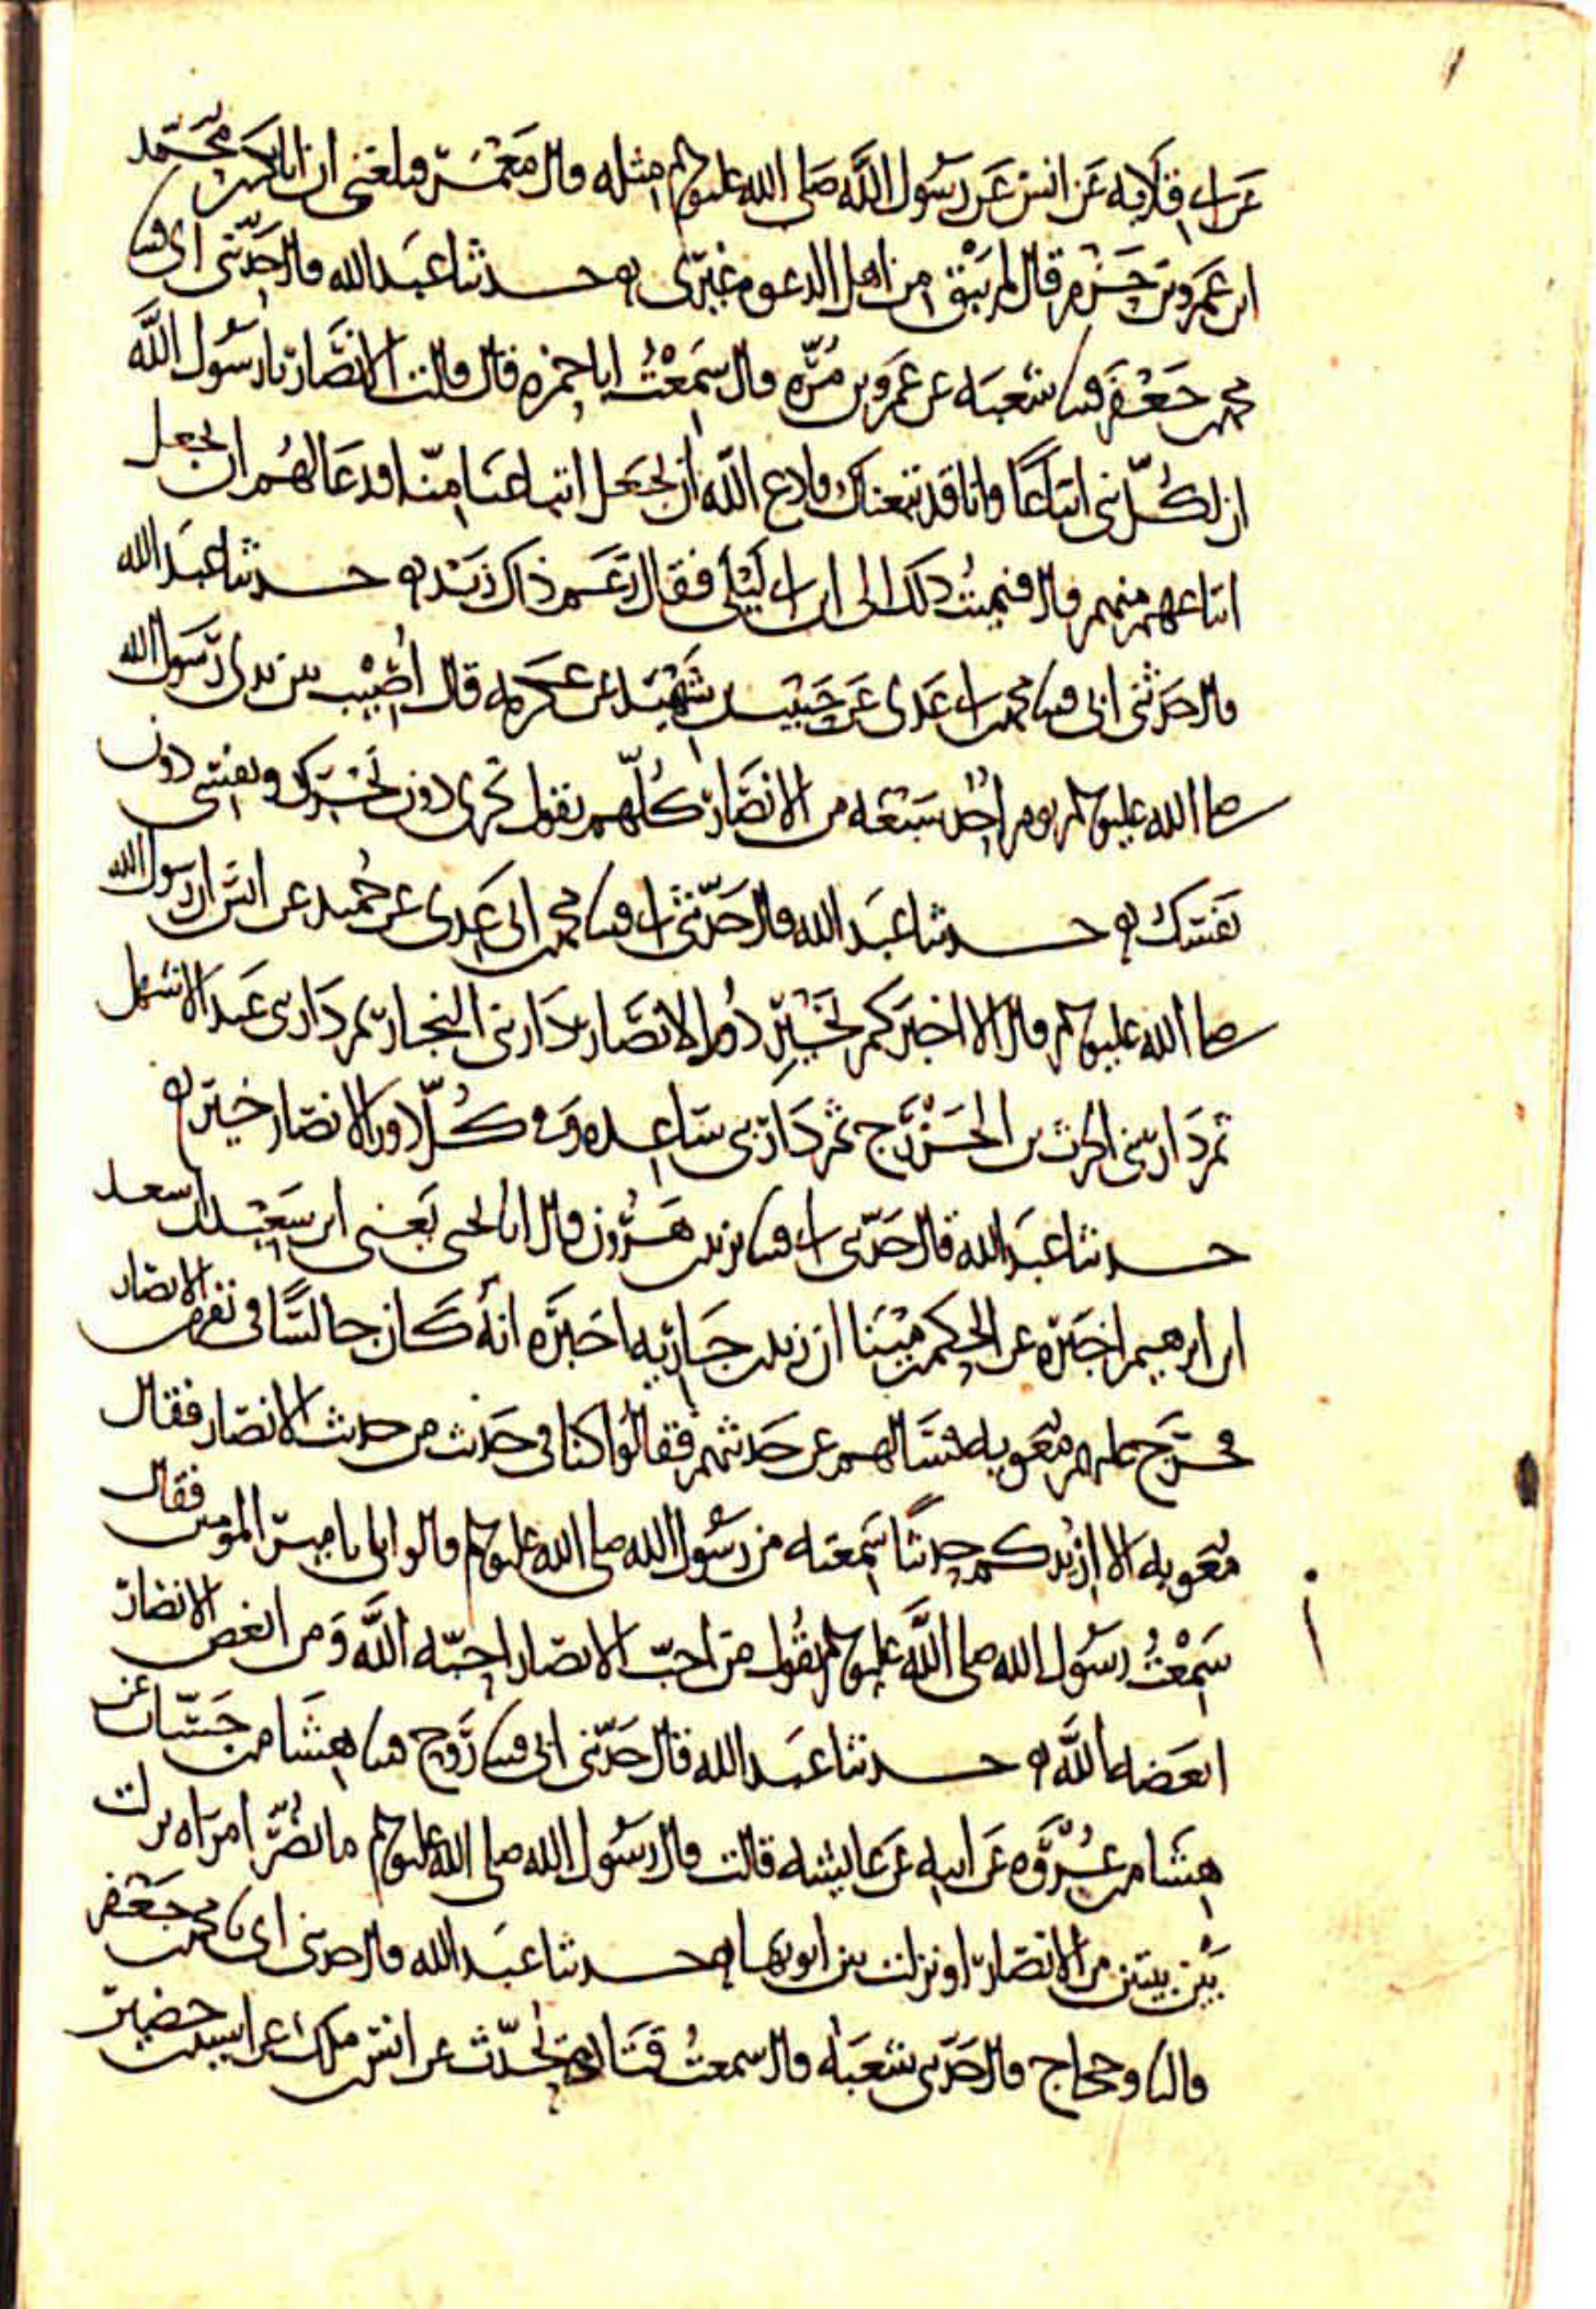 عن ابي قلابه عن انس عن رسول الله صلى الله عليه وسلم مثله قال معمر فبلغني ان ابا بكر بن محمد
ابن عمرو بن حزم قال لم يبق من اهل الدعوه غيري حدثنا عبد الله قال حدثني ابي قثنا
محمد بن جعفر قثنا شعبه عن عمرو بن مره قال سمعت ابا حمزه قال قالت الانصار يا رسول الله
ان لكل نبي اتباعا وانا قد تبعناك فادع الله ان يجعل اتباعنا منا فدعا لهم ان يجعل
اتباعهم منهم قال فنميت ذلك الى ابن ابي ليلى فقال زعم ذاك زيد حدثنا عبد الله
قال حدثني ابي قثنا محمد بن ابي عدي عن حبيب بن شهيد عن عكرمه قال اصيب بين يدي رسول الله
صلى الله عليه وسلم يوم احد سبعه من الانصار كلهم يقول نحري دون نحرك ونفسي دون
نفسك حدثنا عبد الله قال حدثني ابي قثنا محمد بن ابي عدي عن حميد عن انس ان رسول الله
صلى الله عليه وسلم قال الا اخبركم بخير دور الانصار دار بني النجار ثم دار بني عبد الاشهل
ثم دار بني الحرث بن الخزرج ثم دار بني ساعده وفي كل دور الانصار خير
حدثنا عبد الله قال حدثني ابي قثنا يزيد بن هرون قال انا يحيى يعني ابن سعيد ان سعد
ابن ابرهيم اخبره عن الحكم بن مينا ان يزيد بن جاريه اخبره انه كان جالسا في نفر من الانصار
فخرج عليهم معويه فسالهم عن حديثهم فقالوا كنا في حديث من حديث الانصار فقال
معويه الا ازيدكم حديثا سمعته من رسول الله صلى الله عليه وسلم قالوا بلى يا امير المومنين فقال
سمعت رسول الله صلى الله عليه وسلم يقول من احب الانصار احبه الله ومن ابغض الانصار
ابغضه الله حدثنا عبد الله قال حدثني ابي قثنا روح قثنا هشام بن حسان عن
هشام بن عروه عن ابيه عن عايشه قالت قال رسول الله صلى الله عليه وسلم ما يضر امراه نزلت
بين بيتين من الانصار او نزلت بين ابويها حدثنا عبد الله قال حدثني ابي نا محمد بن جعفر
قال نا وحجاج قال حدثني شعبه قال سمعت قتاده يحدث عن انس بن ملك عن اسيد بن حضير